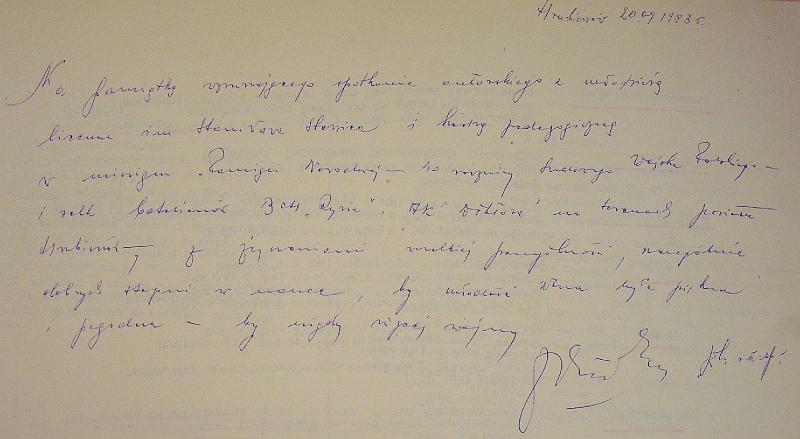 Hrubieszów 20.09 1983 r.
Na pamiątkę wzruszającego spotkania autorskiego z młodzieżą
liceum im Stanisława Staszica i kadrą pedagogiczną
w miesiącu "Pamięci Narodowej" - 40 rocznicy Ludowego Wojska
i walk batalionów BCH "Rysia", AK "Wiktora" na terenach powiatu
z życzeniami wielkiej pomyślności, szczególnie
dobrych stopni w nauce, by młodość Wasza była piękna
i pogodna - by nigdy więcej wojny